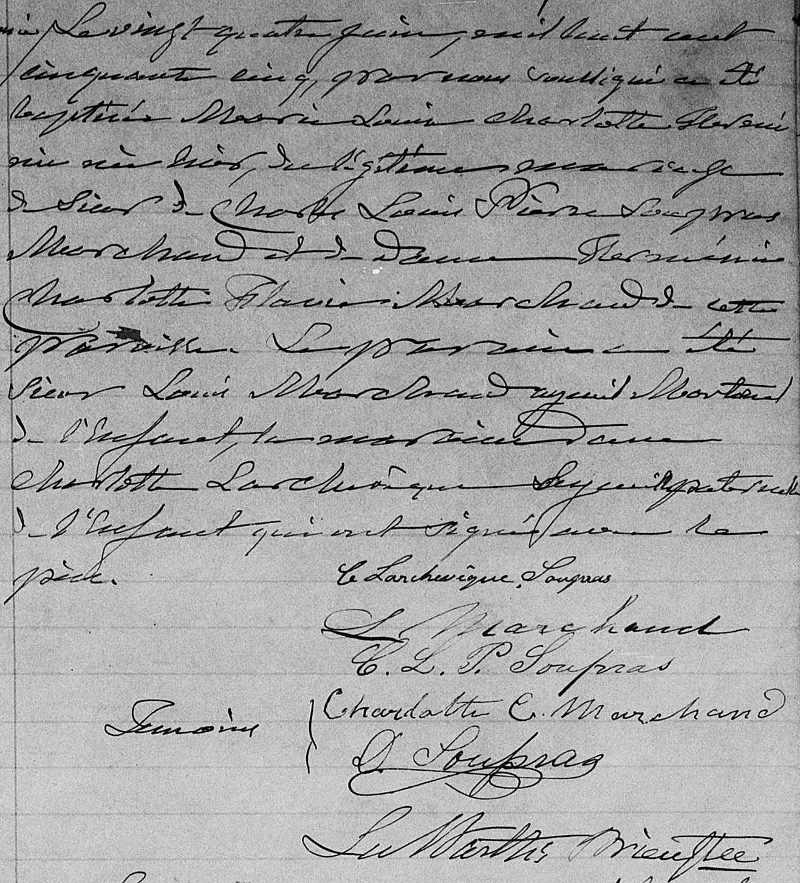 Le vingt quatre juin, mil huit cent
cinquante cinq, par nous soussigné a été
baptisée Marie Louise Charlotte Hermi
nie née hier, du légitime mariage
de Sieur de Charles Louis Pierre Soupras
Marchand et de Dame Herminie
Charlotte Flavie Marchand de cette
paroisse. Le parrain a été
Sieur Louis Marchand ayeuil Maternel
de l'Enfant, la marraine Dame
Charlotte Larchevêque Ayeuille paternelle
de l'Enfant qui ont signé avec le
père.
C Larchevêque Soupras
L Marchand
C. L. P. Soupras
Témoins
Charlotte C. Marchand
Soupras